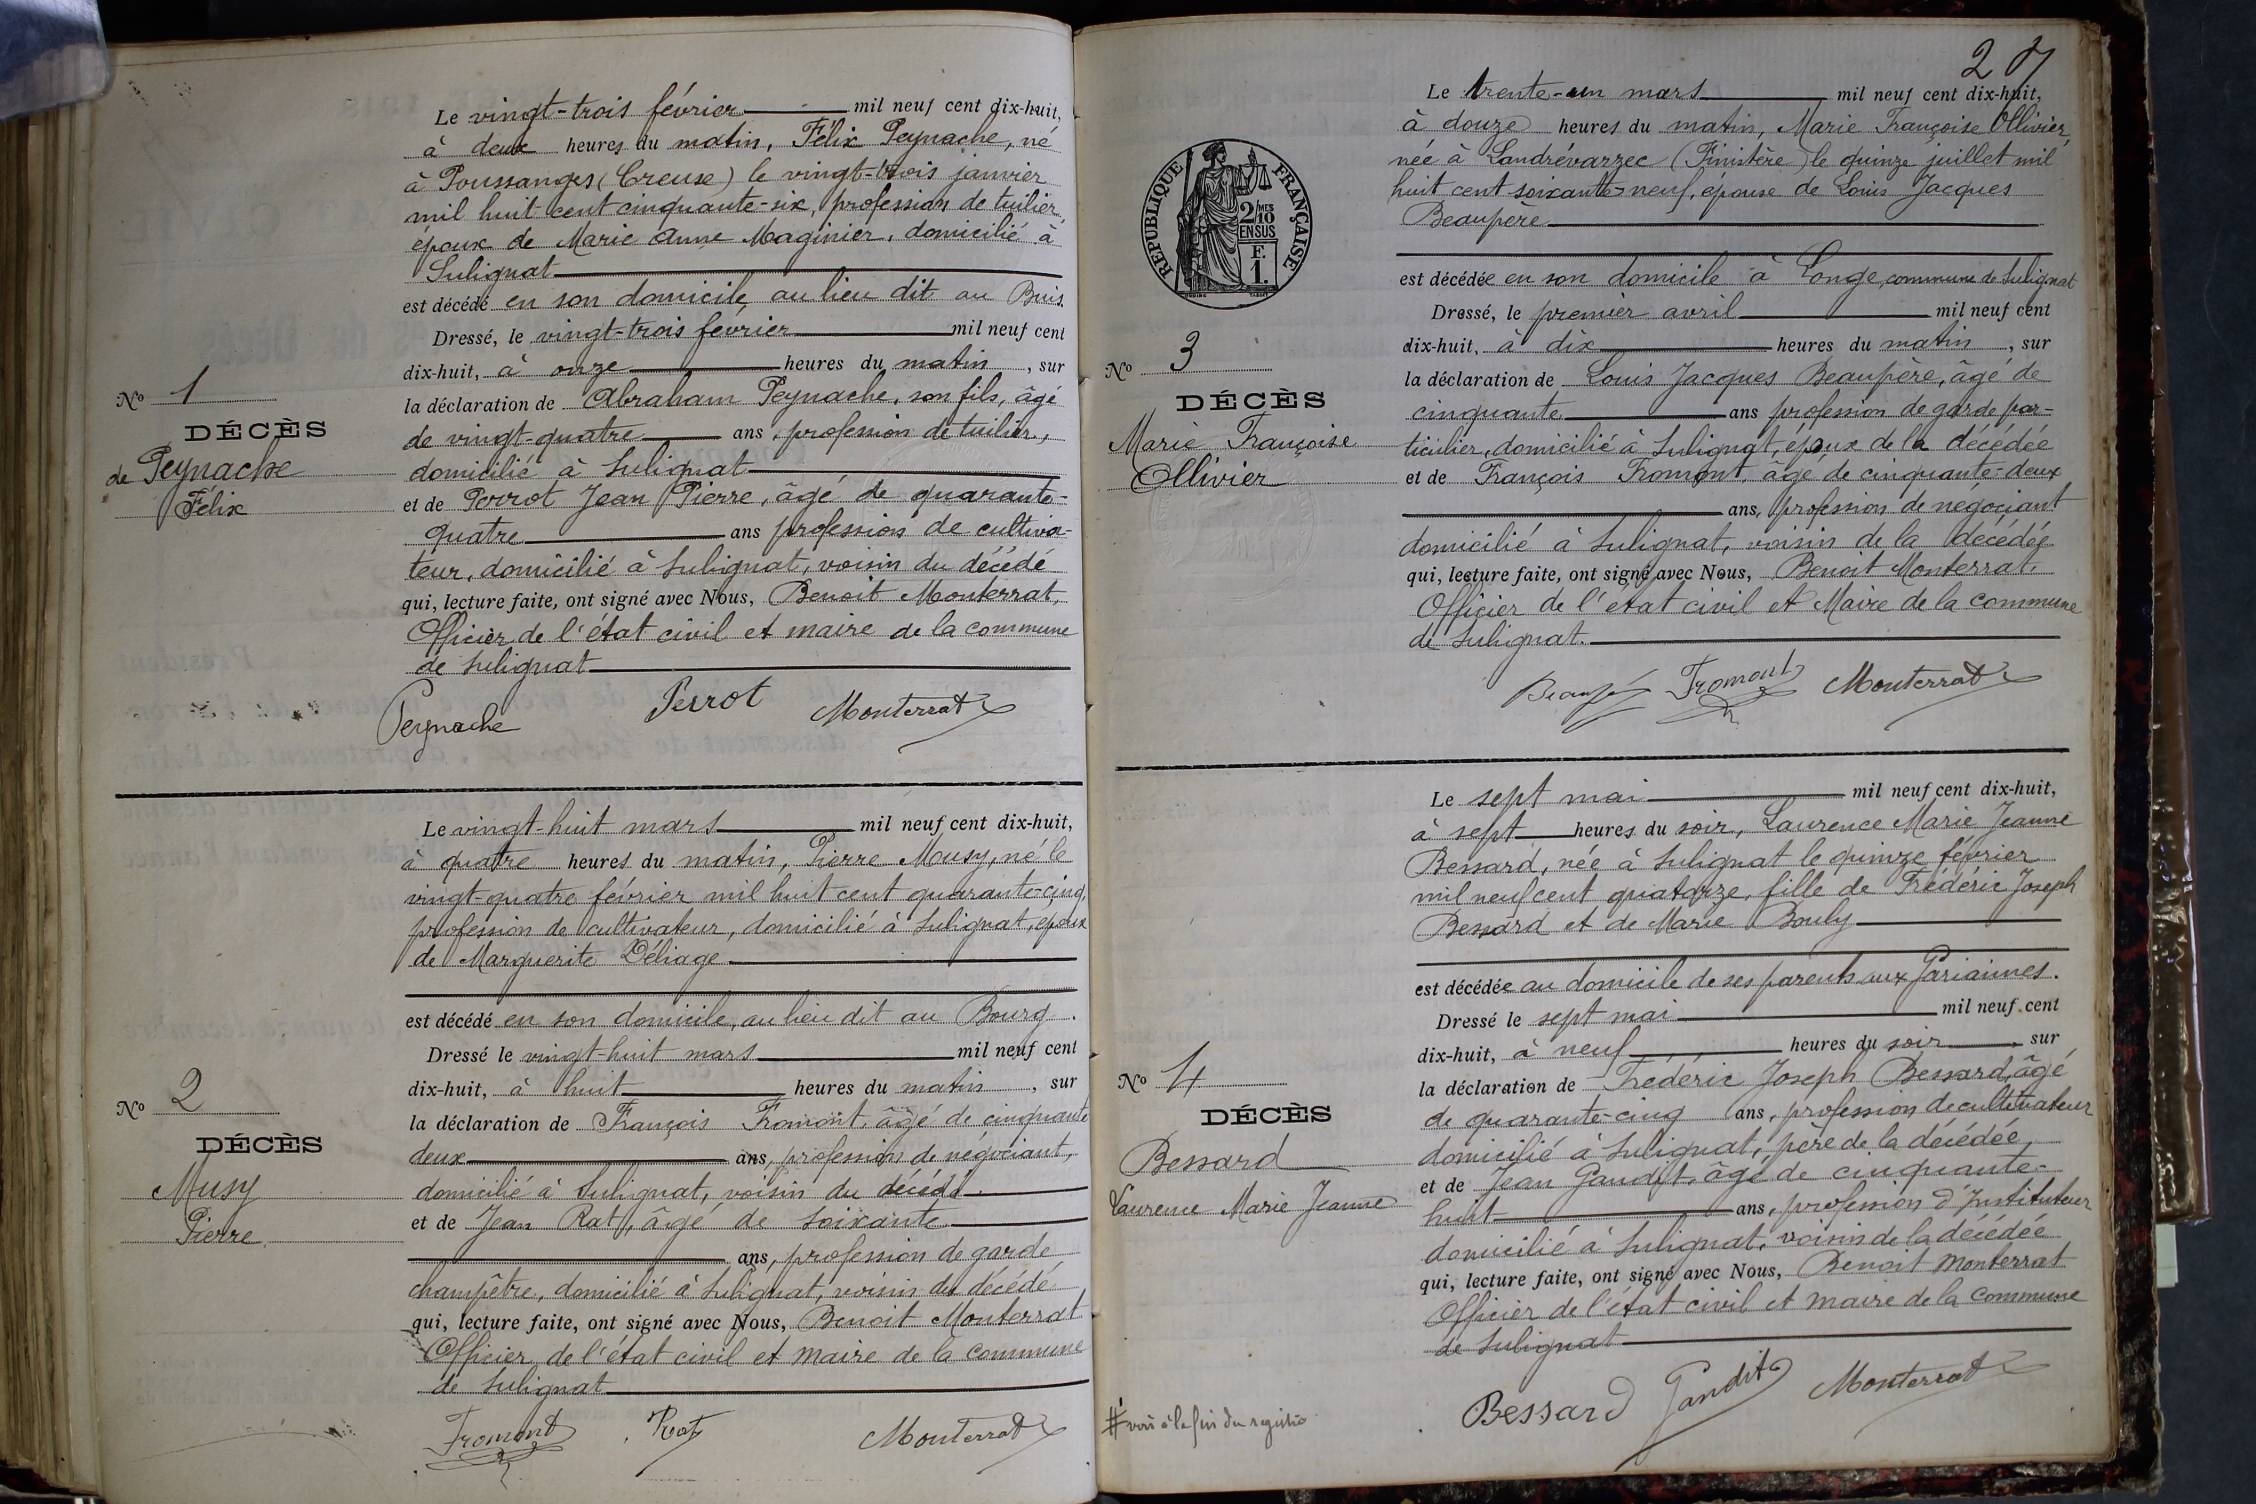 Le vingt-trois février mil neuf cent dix-huit,
à deux heures du matin, Félix Peynache, né
à Poussanges (Creuse) le vingt-trois janvier
mil huit cent cinquante-six, profession de tuilier,
époux de Marie Anne Maginier, domicilié à
Sulignat
est décédé en son domicile, au lieu dit au Buis.
Dressé, le vingt-trois février mil neuf cent
dix-huit, à onze heures du matin, sur
la déclaration de Abraham Peynache, son fils, âgé
de vingt-quatre ans, profession de tuilier,
domicilié à Sulignat
et de Perrot Jean Pierre, âgé de quarante-
quatre ans profession de cultiva-
teur, domicilié à Sulignat, voisin du décédé
qui, lecture faite, ont signé avec Nous, Benoit Monterrat,
Officier de l'état civil et maire de la commune
de Sulignat
Peynache Perrot Monterrat
No 1
DÉCÈS
de Peynache
Félix
Le vingt-huit mars mil neuf cent dix-huit,
à quatre heures du matin, Pierre Musy, né le
vingt-quatre février mil huit cent quarante-cinq,
profession de cultivateur, domicilié à Sulignat, époux
de Marguerite Déliage
est décédé en son domicile, au lieu dit au Bourg.
Dressé le vingt-huit mars mil neuf cent
dix-huit, à huit heures du matin, sur
la déclaration de François Fromont, âgé de cinquante
deux ans, profession de négociant,
domicilié à Sulignat, voisin du décédé
et de Jean Rat, âgé de soixante
ans, profession de garde
champêtre, domicilié à Sulignat, voisin du décédé
qui, lecture faite, ont signé avec Nous, Benoit Monterrat
Officier de l'état civil et maire de la commune
de Sulignat
Fromont Rat Monterrat
No 2
DÉCÈS
Musy
Pierre
27
RÉPUBLIQUE FRANÇAISE
2/10
MES
EN SUS
F.
1.
Le trente-un mars mil neuf cent dix-huit,
à douze heures du matin, Marie Françoise Ollivier
née à Landrévarzec (Finistère) le quinze juillet mil
huit cent soixante-neuf, épouse de Louis Jacques
Beaupère
est décédée en son domicile à Longe, commune de Sulignat
Dressé, le premier avril mil neuf cent
dix-huit, à dix heures du matin, sur
la déclaration de Louis Jacques Beaupère, âgé de
cinquante ans profession de garde par-
ticulier, domicilié à Sulignat, époux de la décédée
et de François Fromont, âgé de cinquante-deux
ans, profession de négociant
domicilié à Sulignat, voisin de la décédée
qui, lecture faite, ont signé avec Nous, Benoit Monterrat,
Officier de l'état civil et Maire de la commune
de Sulignat.
Fromont Monterrat
No 3
DÉCÈS
Marie Françoise
Ollivier
Le sept mai mil neuf cent dix-huit,
à sept heures du soir, Laurence Marie Jeanne
Bessard, née à Sulignat le quinze février
mil neuf cent quatorze, fille de Frédéric Joseph
Bessard et de Marie Bouly
est décédée au domicile de ses parents aux
Dressé le sept mai mil neuf cent
dix-huit, à neuf heures du soir, sur
la déclaration de Frédéric Joseph Bessard, âgé
de quarante-cinq ans, profession de cultivateur
domicilié à Sulignat, père de la décédée,
et de Jean Gandit, âgé de cinquante-
huit ans, profession d'Instituteur
domicilié à Sulignat, voisin de la décédée
qui, lecture faite, ont signé avec Nous, Benoit Monterrat
Officier de l'état civil et maire de la commune
de Sulignat
Bessard Gandit Monterrat
No 4
DÉCÈS
Bessard
Laurence Marie Jeanne
# voir à la fin du registre